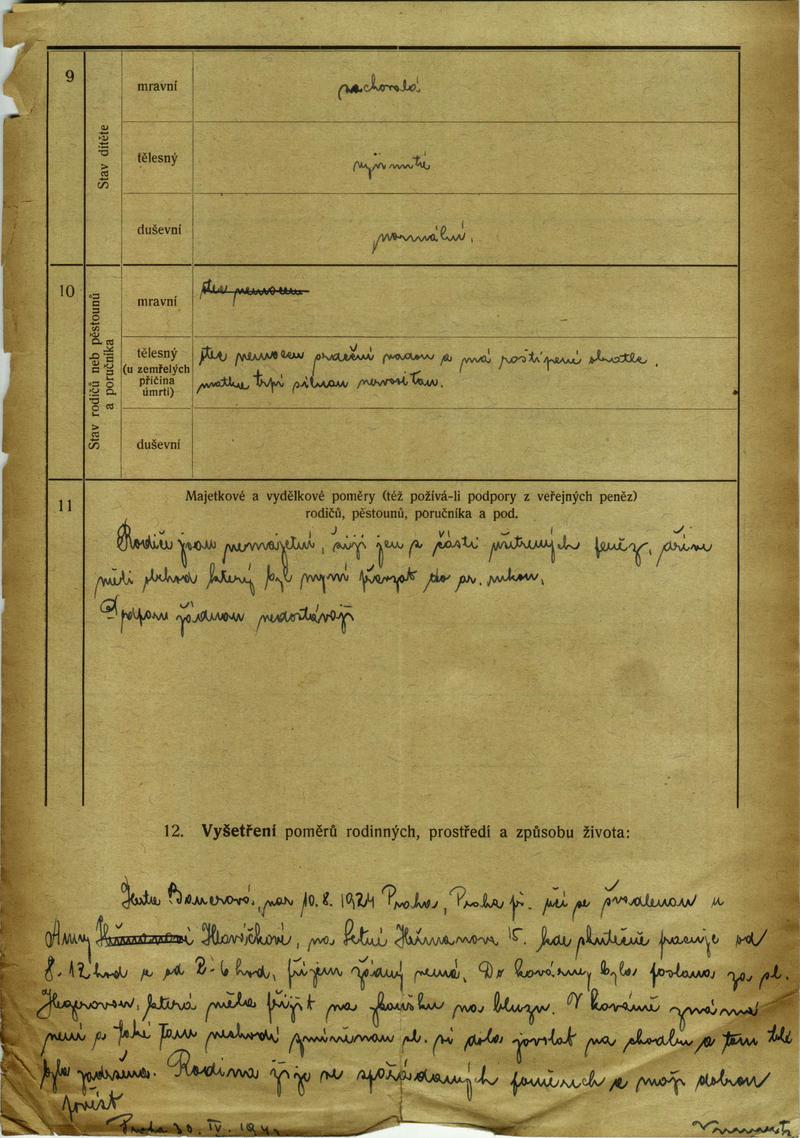 9
Stav dítěte
mravní
zachovalá
tělesný
vyvinuté
duševní
normální.
10
Stav rodičů neb pěstounů
a poručníka
mravní
otec nemocen
tělesný
(u zemřelých
příčina
úmrtí)
otec nemocen srdeční vadou a má roštípené obratle.
matka trpí silnou nervositou.
duševní
11
Majetkové a výdělkové poměry (též požívá-li podpory z veřejných peněz)
rodičů, pěstounů, poručníka a pod.
Rodiče jsou nemajetní, žijí jen z části ušetřených peněz, dříve
měli obchod který byl nyní převzat do ar. rukou.
Podporu žádnou nedostávají
12. Vyšetření poměrů rodinných, prostředí a způsobu života:
Bauerová, nar 10. 8. 1924 Praha, Praha př. učí se švadlenou u
Anny Hlaváčkové, na Letné Heřmanova 15. kde skutečně pracuje od
8-12 hod a od 2-6 hod, příjem žádný nemá. Do kavárny byla poslana za sl.
která měla přijít na zkoušku na bluzu. V kavárně známá
není a také tam nechodí zmíněnou sl. si dala zavolat na chodbu a tam též
byla zadržena. Rodina žije ve spořádaných poměrech a mají dobrou
pověst
Praha 30. IV. 194